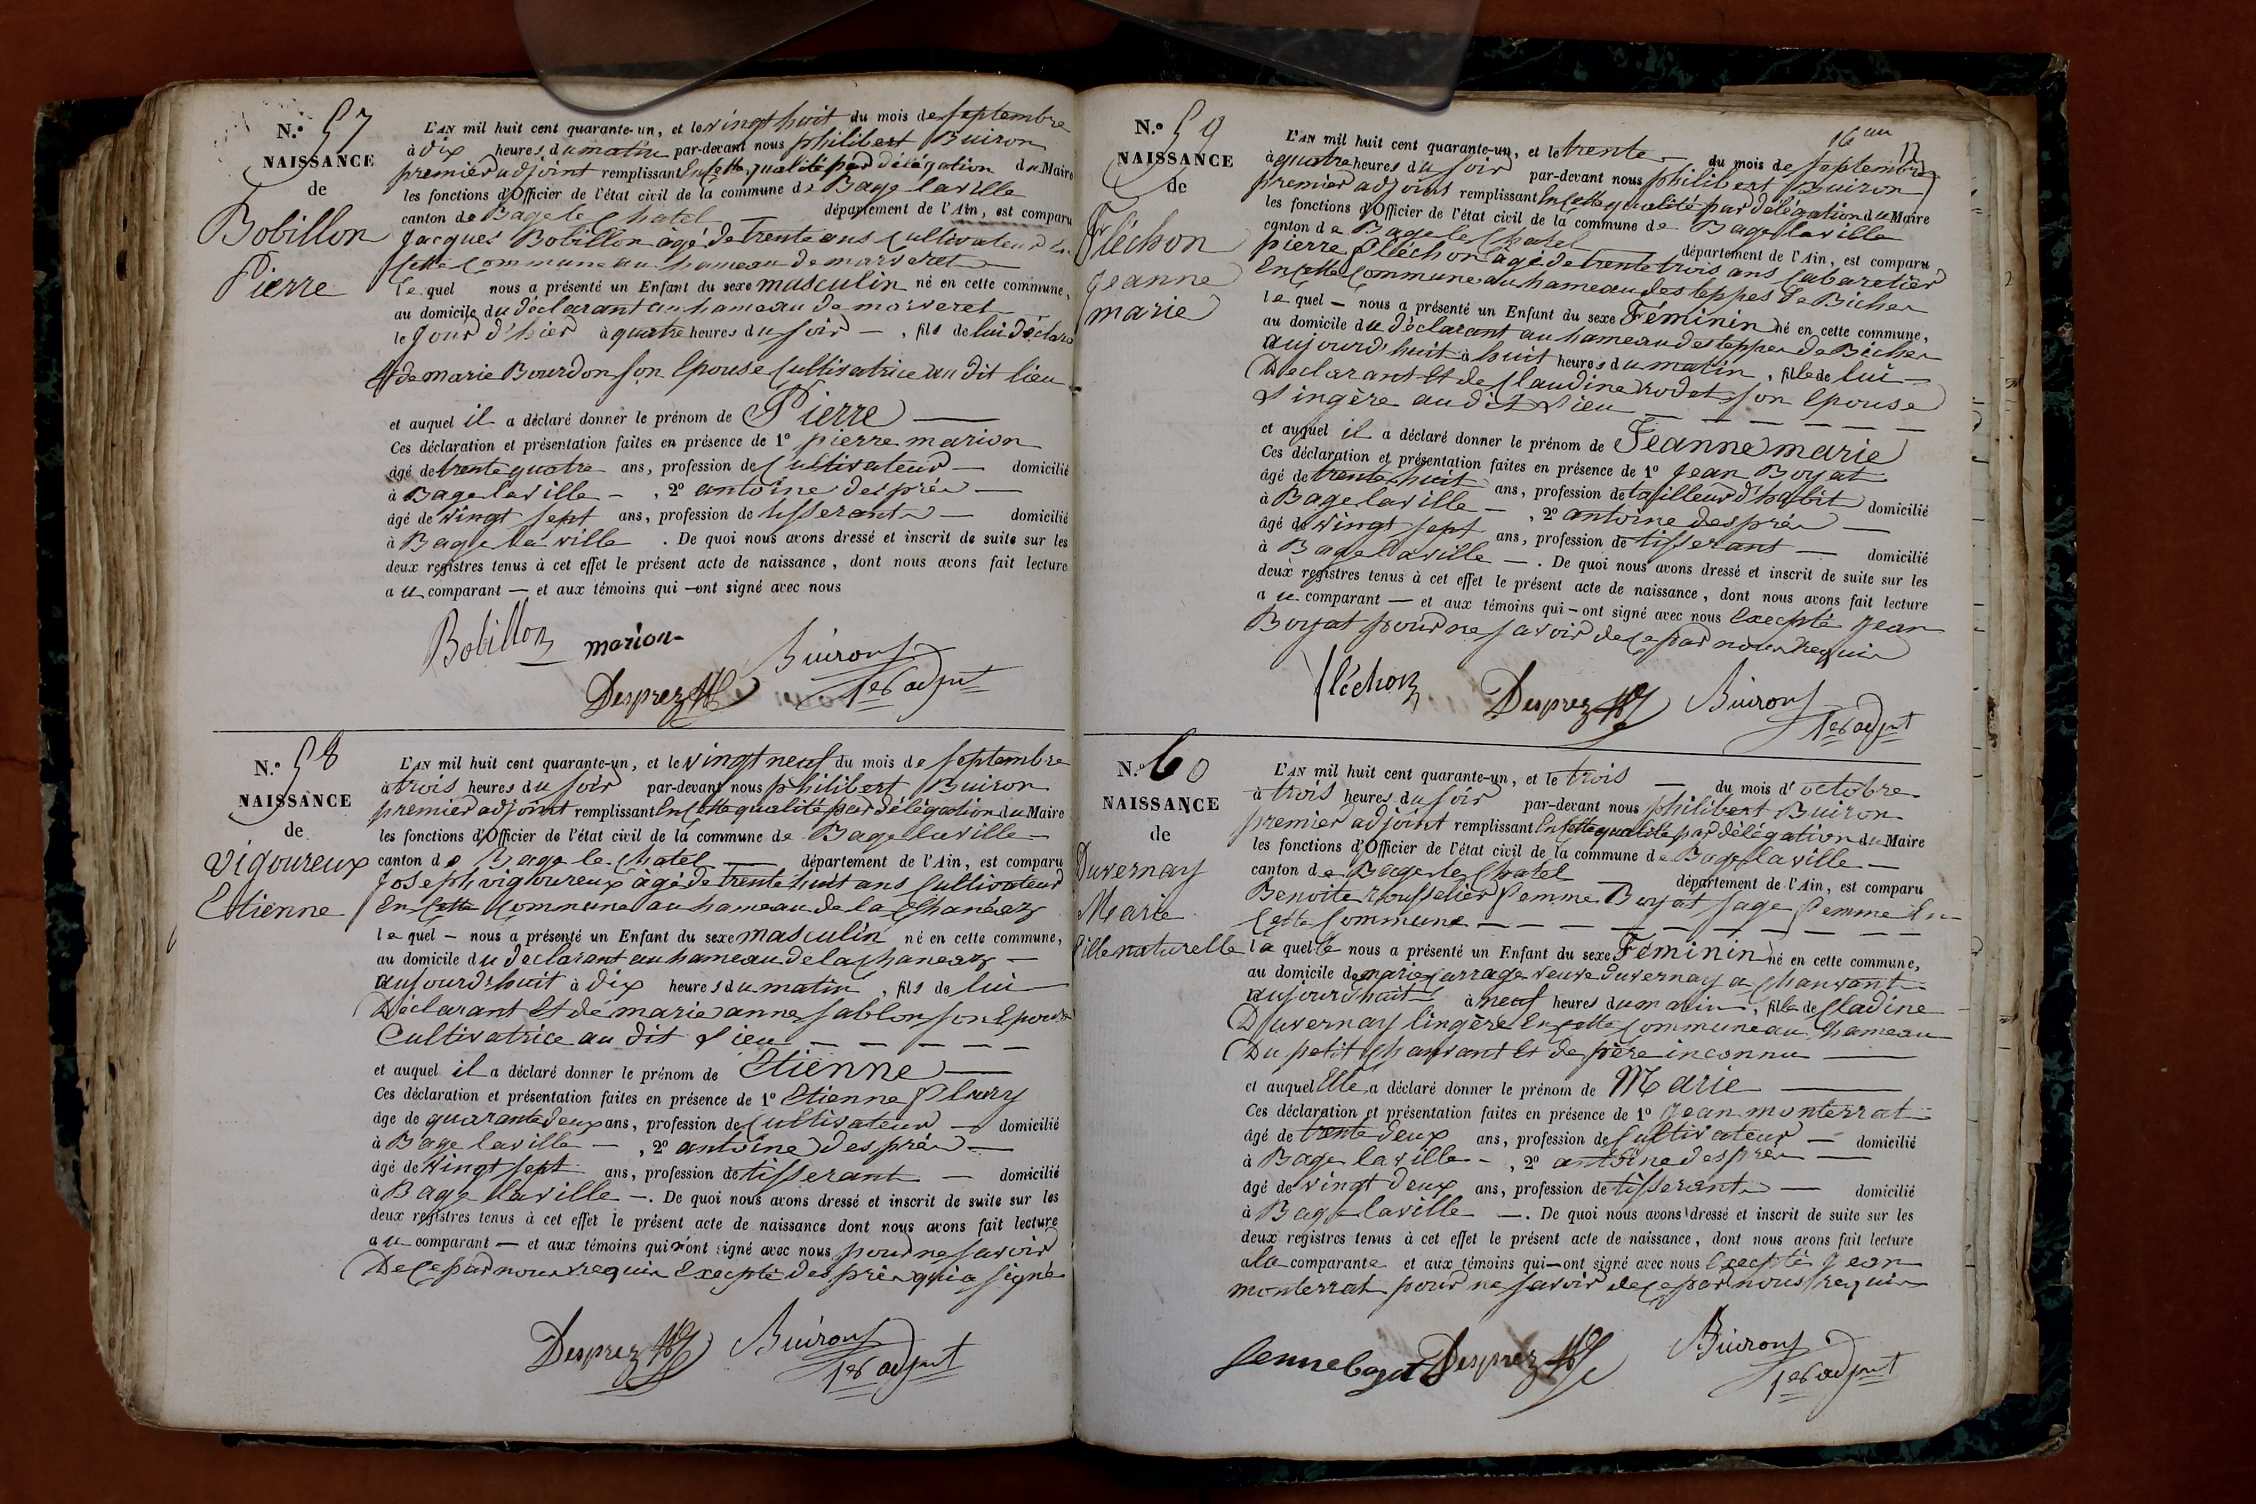 N.º 57
NAISSANCE
de
Bobillon
Pierre
L'AN mil huit cent quarante-un, et le vingt huit du mois de septembre
à dix heures du matin par-devant nous philibert Buiron
premier adjoint remplissant En cette qualité par délégation du Maire
les fonctions d'Officier de l'état civil de la commune de Bage laville
canton de Bage le Chatel — département de l'Ain, est comparu
Jacques Bobillon âgé de trente ans Cultivateur En
cette Commune au hameau de marveret
le quel nous a présenté un Enfant du sexe masculin né en cette commune,
au domicile du déclarant au hameau de marveret
le Jour d'hier à quatre heures du soir — , fils de lui Déclara
Et de marie Bourdon son Epouse Cultivatrice au dit lieu
et auquel il a déclaré donner le prénom de Pierre —
Ces déclaration et présentation faites en présence de 1º pierre marion
âgé de trente quatre ans, profession de Cultivateur — domicilié
à Bage laville — , 2º antoine després —
âgé de vingt sept ans, profession de tisserant — domicilié
à Bage la ville . De quoi nous avons dressé et inscrit de suite sur les
deux registres tenus à cet effet le présent acte de naissance, dont nous avons fait lecture
au comparant — et aux témoins qui — ont signé avec nous
Bobillon marion
Desprez Buiron
1er adjnt
N.º 58
NAISSANCE
de
Vigoureux
Etienne
L'AN mil huit cent quarante-un, et le vingt neuf du mois de septembre
à trois heures du soir par-devant nous philibert Buiron
premier adjoint remplissant En cette qualité par délégation du Maire
les fonctions d'Officier de l'état civil de la commune de Bage laville —
canton de Bage le Chatel — département de l'Ain, est comparu
Joseph vigoureux âgé de trente huit ans Cultivateur
En cette Commune au hameau de la
le quel — nous a présenté un Enfant du sexe masculin né en cette commune,
au domicile du déclarant au hameau de la —
aujourd'huit à dix heures du matin , fils de lui
Déclarant Et de marie anne sablon son Epouse
Cultivatrice au dit Lieu — — — — —
et auquel il a déclaré donner le prénom de Etienne —
Ces déclaration et présentation faites en présence de 1º Etienne
âge de quarante deux ans, profession de Cultivateur — domicilié
à Bage laville — , 2º antoine després —
âgé de vingt sept ans, profession de tisserant — domicilié
à Bage laville —. De quoi nous avons dressé et inscrit de suite sur les
deux registres tenus à cet effet le présent acte de naissance dont nous avons fait lecture
au comparant — et aux témoins qui n'ont signé avec nous pour ne savoir
De ce par nous requis Excepté després qui a signé
Desprez Buiron
1er adjnt
16
N.º 59
NAISSANCE
de
Fléchon
Jeanne
marie
L'AN mil huit cent quarante-un, et le trente — du mois de septembre
à quatre heures du soir par-devant nous philibert Buiron
premier adjoint remplissant En cette qualité par délégation du Maire
les fonctions d'Officier de l'état civil de la commune de Bage laville
canton de Bage le Chatel département de l'Ain, est comparu
pierre Fléchon âgé de trente trois ans Cabaretier
En cette Commune au hameau des teppes de Biches
le quel — nous a présenté un Enfant du sexe Féminin né en cette commune,
au domicile du déclarant au hameau des teppes de Biches
aujourd'huit à huit heures du matin , fille de lui —
Déclarant Et de Claudine rodet son Epouse
Lingère au dit Lieu — — — — — —
et auquel il a déclaré donner le prénom de Jeanne marie
Ces déclaration et présentation faites en présence de 1º Jean Boyat
âgé de trente huit ans, profession de tailleur d'habit domicilié
à Bage laville — , 2º antoine després —
âgé de vingt sept ans, profession de tisserant — domicilié
à Bage laville —. De quoi nous avons dressé et inscrit de suite sur les
deux registres tenus à cet effet le présent acte de naissance, dont nous avons fait lecture
au comparant — et aux témoins qui — ont signé avec nous Excepté Jean
Boyat pour ne savoir de ce par nous requis
fléchon Desprez Buiron
1er adjnt
N.º 60
NAISSANCE
de
Duvernay
Marie
fille naturelle
L'AN mil huit cent quarante-un, et le trois — du mois d'octobre
à trois heures du soir par-devant nous philibert Buiron
premier adjoint remplissant En cette qualité par délégation du Maire
les fonctions d'Officier de l'état civil de la commune de Bage laville —
canton de Bage le Chatel département de l'Ain, est comparu
Benoite rousselier femme Boyat sage femme En
Cette Commune — — — — — — — — —
la quelle nous a présenté un Enfant du sexe Féminin né en cette commune,
au domicile de marie carrage veuve duvernay a Chanvant
aujourd'huit à neuf heures du matin , fille de Cladine
Duvernay lingère En cette Commune au hameau
Du petit Chanvant Et de père inconnu —
et auquel Elle a déclaré donner le prénom de Marie —
Ces déclaration et présentation faites en présence de 1º Jean monterrat
âgé de trente deux ans, profession de Cultivateur — domicilié
à Bage laville — , 2º antoine després —
âgé de vingt deux ans, profession de tisserant — domicilié
à Bage laville —. De quoi nous avons dressé et inscrit de suite sur les
deux registres tenus à cet effet le présent acte de naissance, dont nous avons fait lecture
à la comparante et aux témoins qui — ont signé avec nous Excepté Jean
monterrat pour ne savoir de ce par nous requis
femme boyat Desprez Buiron
1er adjnt